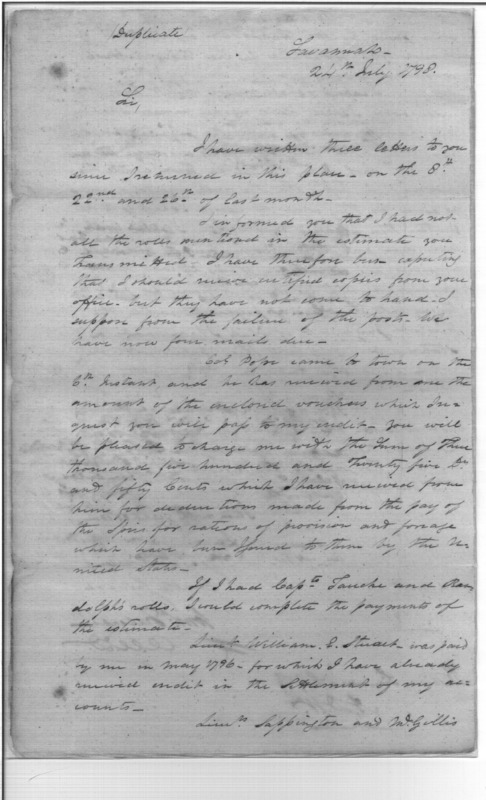 Duplicate
Savannah -
24th July 1798.
Sir,
I have written three letters to you
since I returned in this place - on the 8th
22nd and 26th of last month -
I informed you that I had not
all the rolls mentioned in the estimate you
transmitted. I have therefore been expecting
that I should receive certified copies from your
office. but they have not come to hand. I
suppose from the failure of the posts. We
have now four mails due -
Col. Pope came to town on the
6th Instant and he has received from me the
amount of the enclosed vouchers which I re-
quest you will pass to my credit - you will
be pleased to charge me with the Sum of Three
thousand five hundred and Twenty five Drs
and fifty Cents which I have received from
him for deductions made from the pay of
the Spies for rations of provision and forage
which have been Issued to them by the U-
nited States -
If I had Capts Fauche and Ran
dolph's rolls. I could complete the payments of
the estimate -
Lieut William. E. Stuart - was paid
by me in May 1796 - for which I have already
received credit in the Settlement of my ac-
counts -
Lieuts Sappington and McGillis